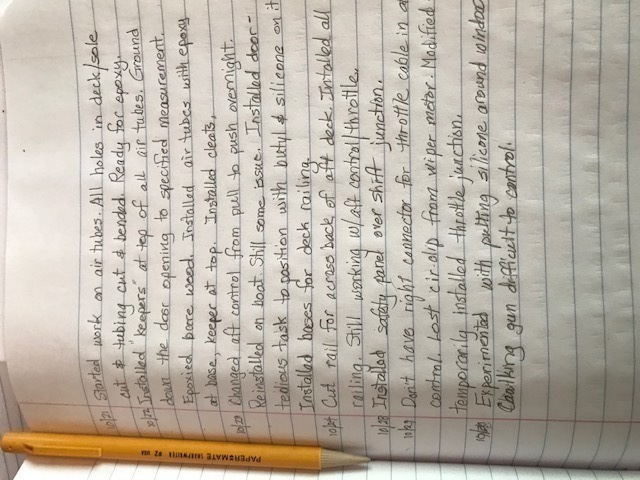 10/21 Started work on air tubes. All holes in deck/sole
cut & tubing cut & bended. Ready for epoxy.
10/22 Installed "keepers" at top of all air tubes. Ground
down the door opening to specified measurement.
Epoxied bare wood. Installed air tubes with epoxy
at base, keeper at top. Installed cleats.
10/23 Changed aft control from pull to push overnight.
Reinstalled on boat. Still some issue. Installed door-
tedious task to position with butyl & silicone on it
Installed bases for deck railing.
10/27 Cut rail for across back of aft deck. Intalled all
railing. Still working w/aft control/throttle.
10/28 Installed safety panel over shift junction.
10/29 Don't have right connector for throttle cable in a
control. Lost circlip from wiper motor. Modified
temporarily installed throttle junction.
10/30 Experimented with putting silicone around window
Caulking gun difficult to control.
PAPERMATE SHARPWRITER #2 USA